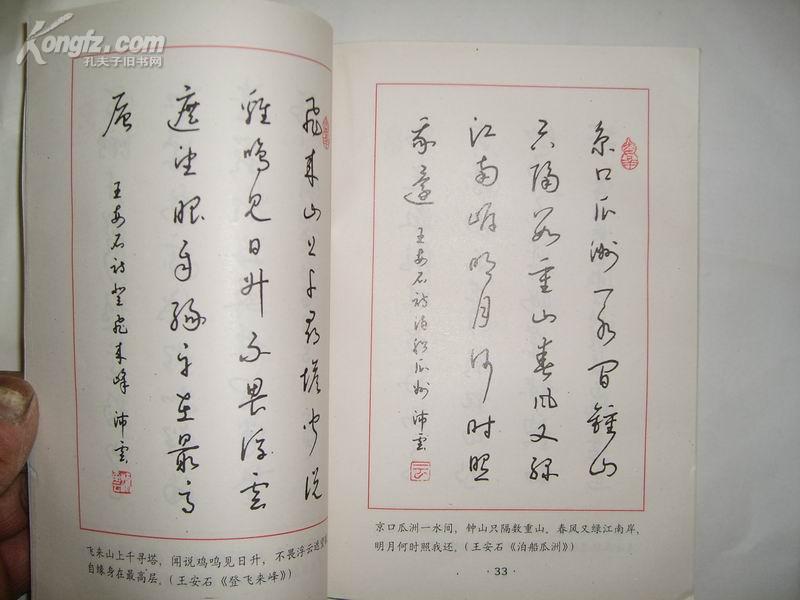 Kongfz.com
孔夫子旧书网
飛来山上千尋塔聞说
雞鳴見日升不畏浮雲
遮望眼自緣身在最高
層
王安石詩登飛来峰 沛雲
飞来山上千寻塔，闻说鸡鸣见日升，不畏浮云遮望
自缘身在最高层。（王安石《登飞来峰》）
京口瓜洲一水间鍾山
只隔數重山春風又綠
江南岸明月何時照
我還
王安石詩泊船瓜洲 沛雲
京口瓜洲一水间，钟山只隔数重山，春风又绿江南岸，
明月何时照我还。（王安石《泊船瓜洲》）
·33·